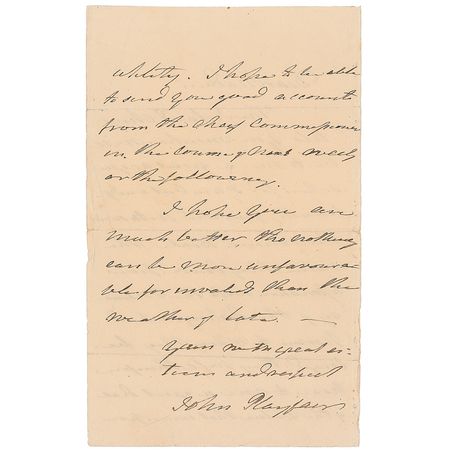 utility. I hope to be able
to send you good accounts
from the Chief Commissioner
in the course of next week
or the following.
I hope you are
much better, tho nothing
can be more unfavoura-
ble for invalids than the
weather of late. —
yours with great es-
teem and respect
John Playfair